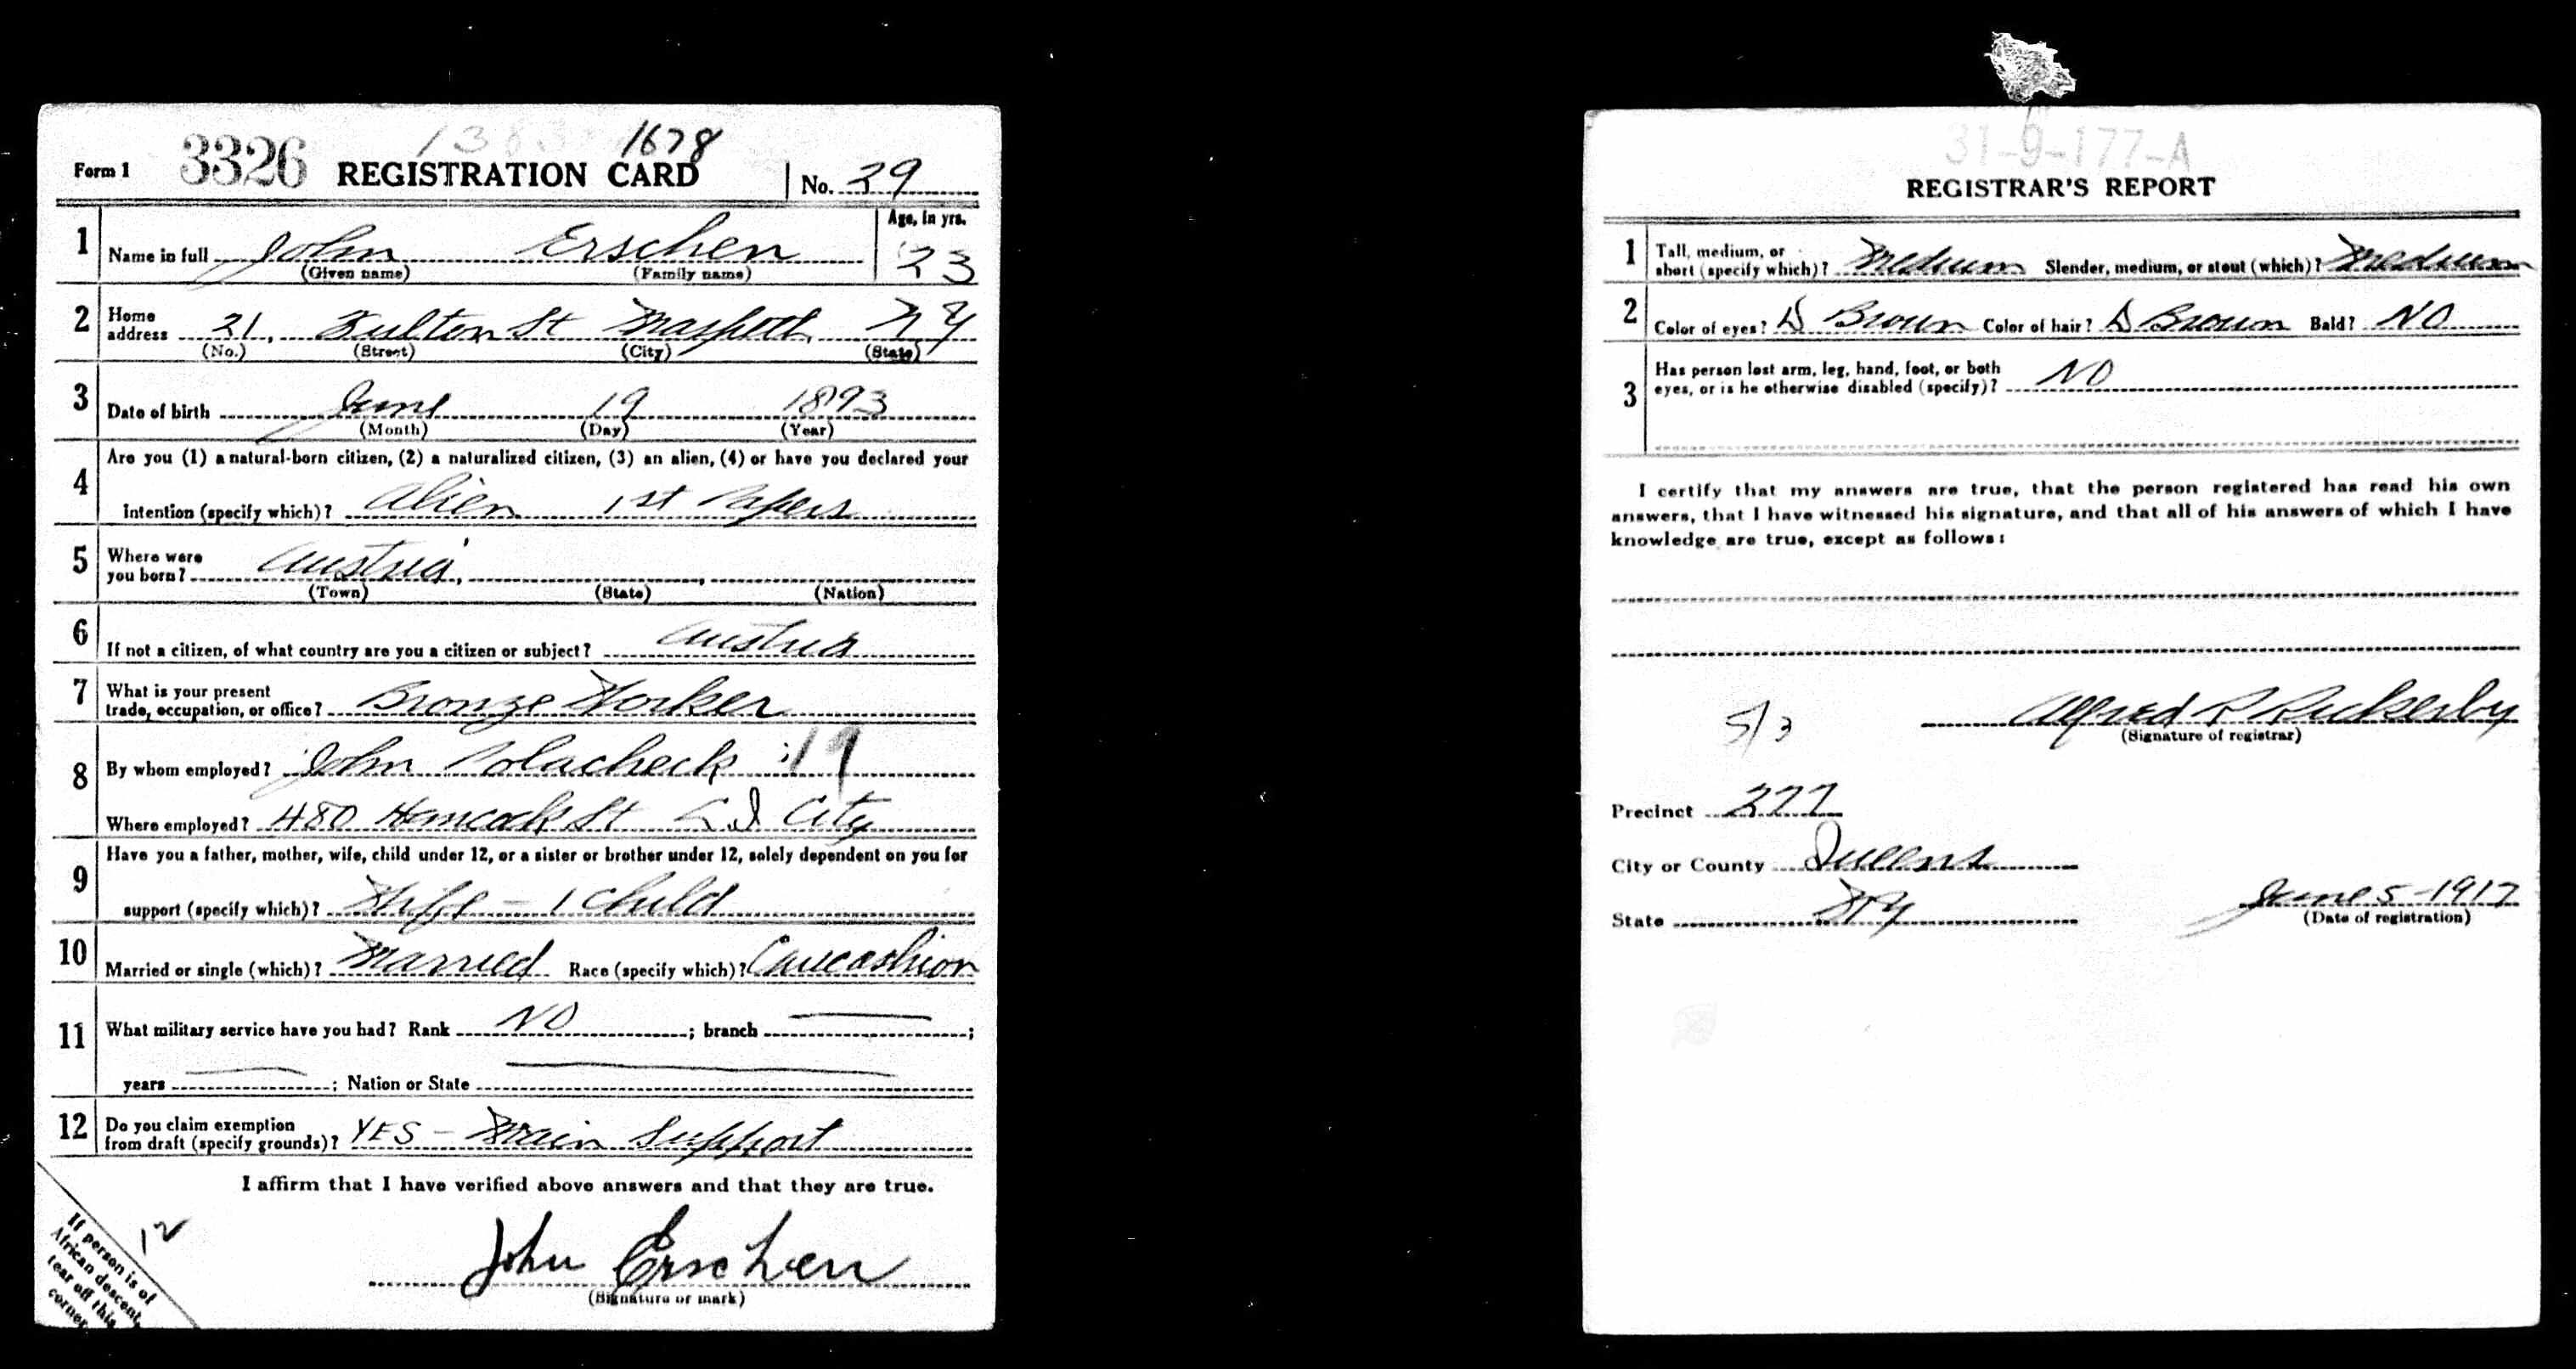 1383 1678
Form 1 3326 REGISTRATION CARD No. 29
1 Name in full John Erschen Age, in yrs. 23
(Given name) (Family name)
2 Home address 21, Fulton St Maspeth, N Y
(No.) (Street) (City) (State)
3 Date of birth June 19 1893
(Month) (Day) (Year)
4 Are you (1) a natural-born citizen, (2) a naturalized citizen, (3) an alien, (4) or have you declared your
intention (specify which)? Alien 1st Papers
5 Where were you born? Austria,
(Town) (State) (Nation)
6 If not a citizen, of what country are you a citizen or subject? Austria
7 What is your present trade, occupation, or office? Bronze Worker
8 By whom employed? John Polacheck 19
Where employed? 480 Hancock St L I City
9 Have you a father, mother, wife, child under 12, or a sister or brother under 12, solely dependent on you for
support (specify which)? Wife - 1 Child
10 Married or single (which)? Married Race (specify which)? Caucashion
11 What military service have you had? Rank NO ; branch ;
years ; Nation or State
12 Do you claim exemption from draft (specify grounds)? YES - Main Support
I affirm that I have verified above answers and that they are true.
12
John Erschen
(Signature or mark)
If person is of
African descent,
tear off this
corner.
31-9-177-A
REGISTRAR'S REPORT
1 Tall, medium, or short (specify which)? Medium Slender, medium, or stout (which)? Medium
2 Color of eyes? D Brown Color of hair? D Brown Bald? NO
3 Has person lost arm, leg, hand, foot, or both
eyes, or is he otherwise disabled (specify)? NO
I certify that my answers are true, that the person registered has read his own
answers, that I have witnessed his signature, and that all of his answers of which I have
knowledge are true, except as follows:
5/3 Alfred R Rickerby
(Signature of registrar)
Precinct 277
City or County Queens
State NY June 5-1917
(Date of registration)